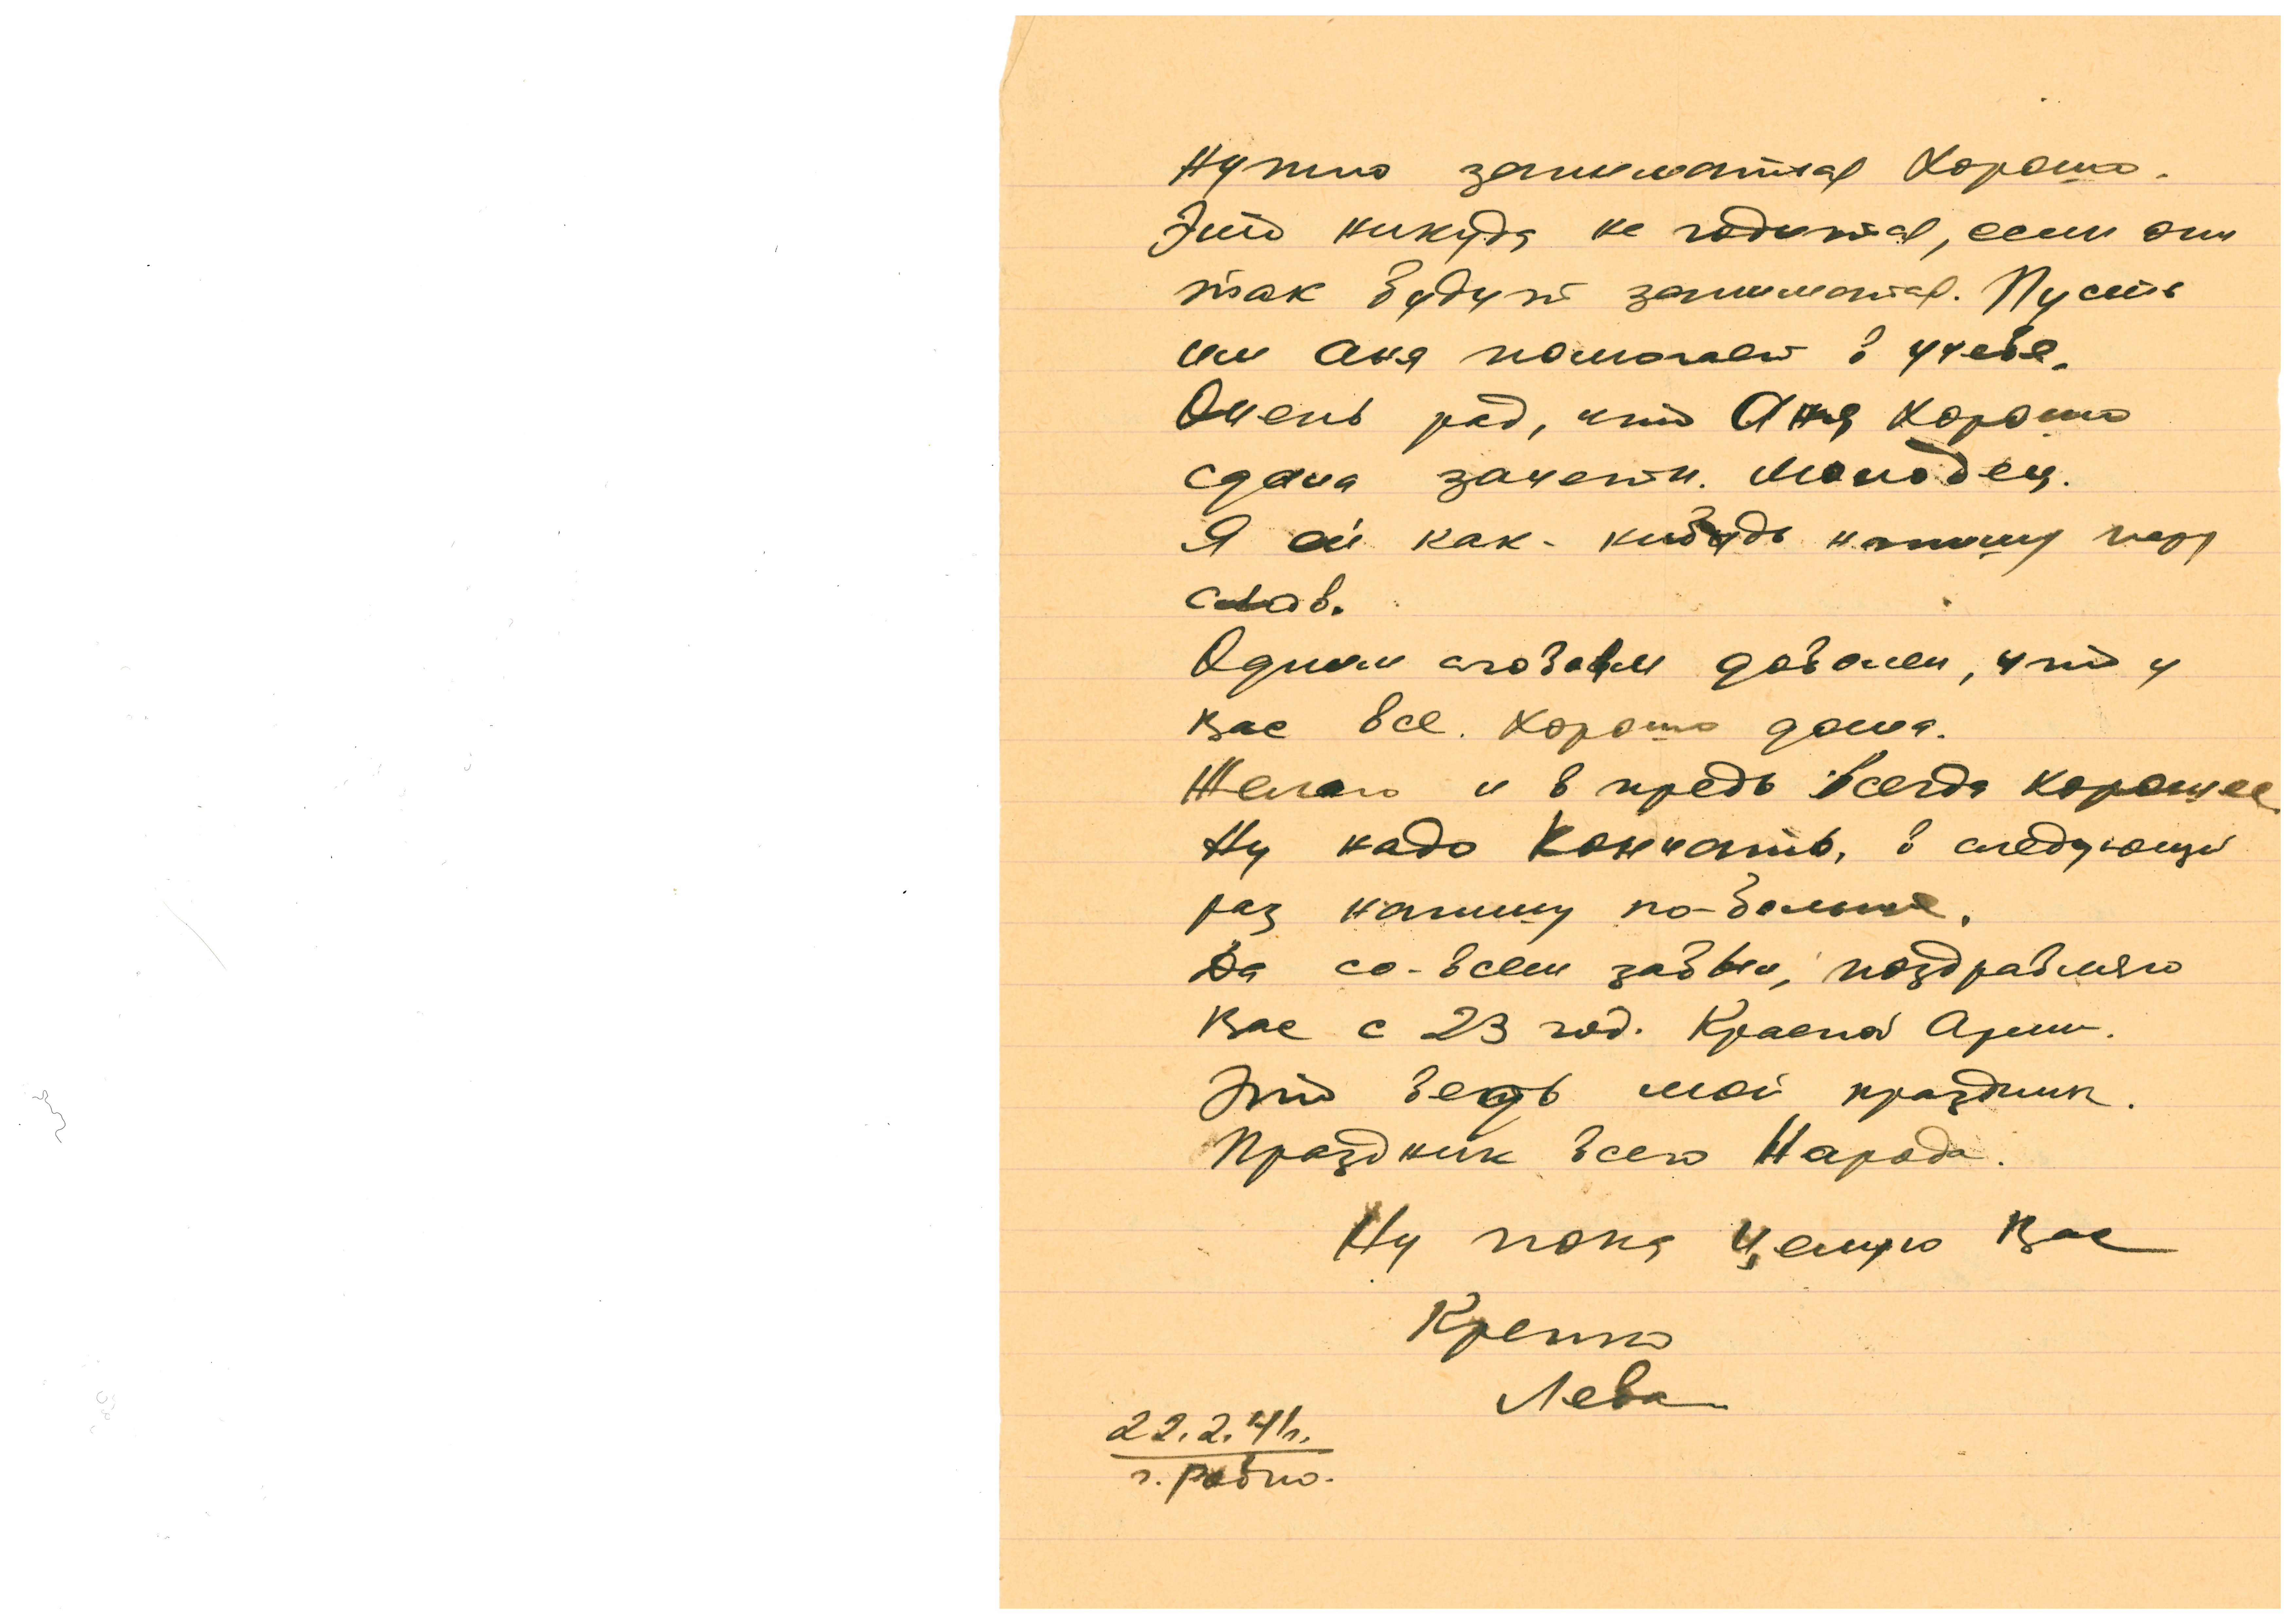 Нужно заниматься хорошо.
Это никуда не годится, если они
так будут заниматся. Пусть
им Аня помогает в учебе.
Очень рад, что Аня хорошо
сдала зачеты. Молодец.
Я ей как-нибудь напишу пару
слов.
Одним словом доволен, что у
Вас все. хорошо дома.
Желаю и в предь всегда хорошее.
Ну надо кончать, в следующий
раз напишу по-больше.
Да со-всем забыл, поздравляю
Вас с 23 год. Красной Армии.
Это ведь мой праздник.
Праздник всего Народа.
Ну пока целую Вас
Крепко
Лева
22.2.41г.
г. Ровно.